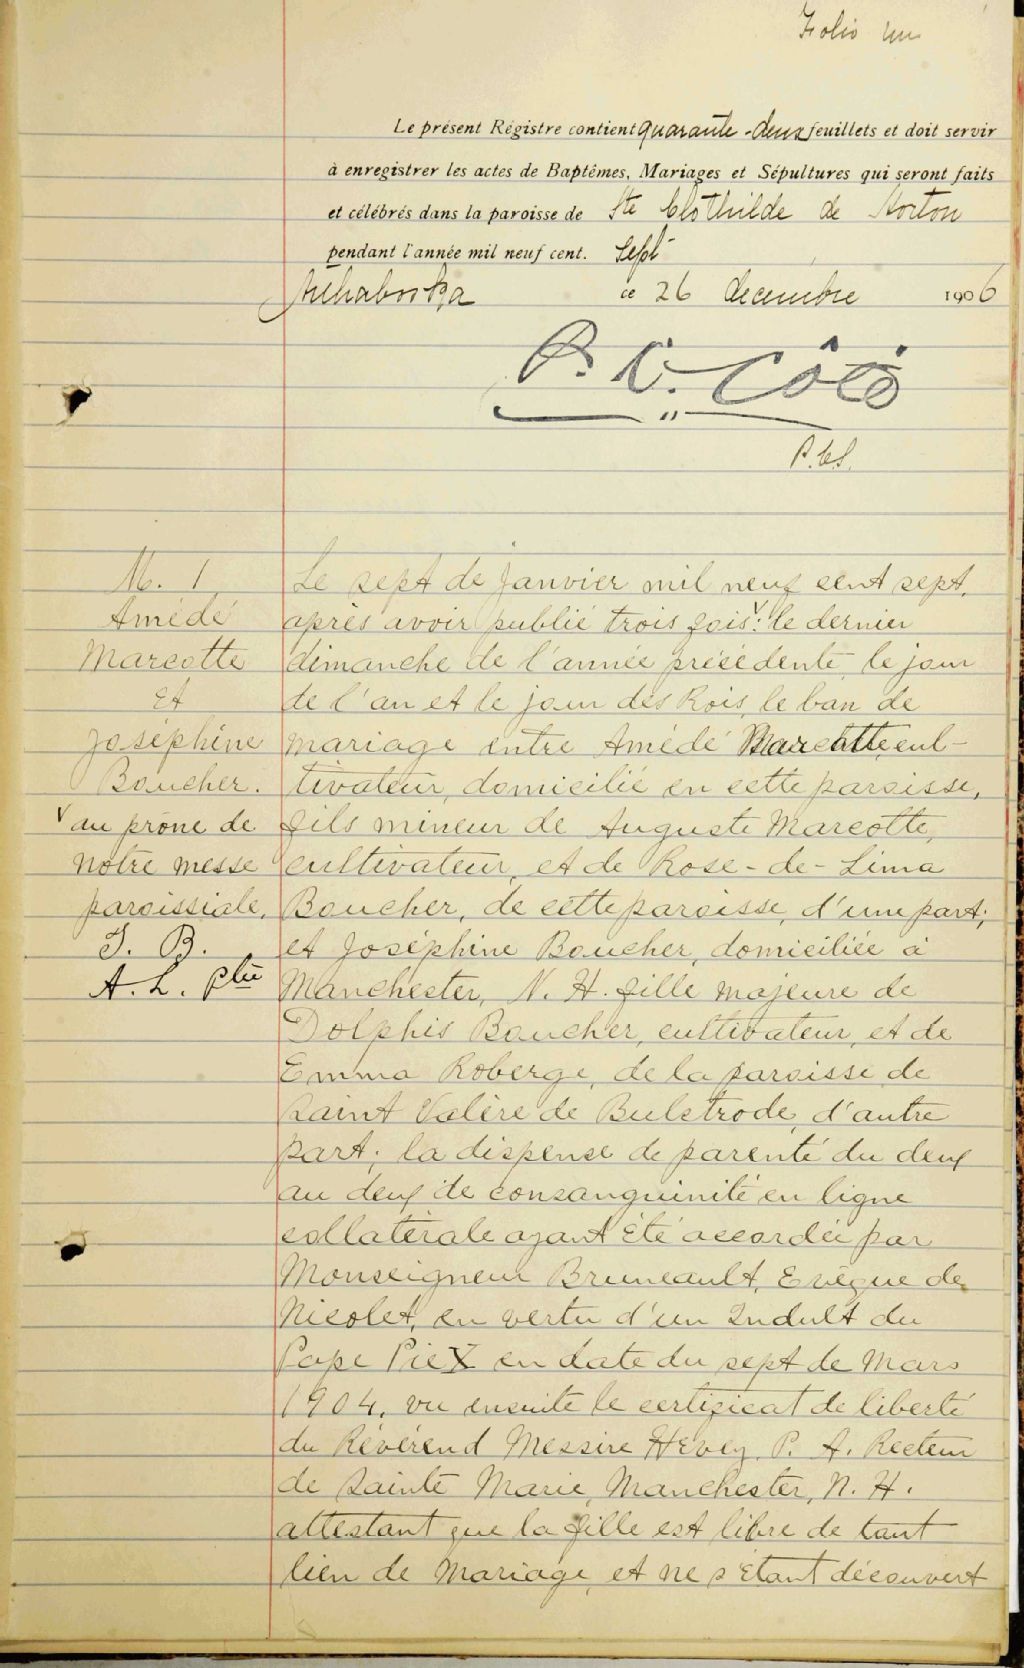 Folio un
Le présent Régistre contient quarante-deux feuillets et doit servir
à enregistrer les actes de Baptêmes, Mariages et Sépultures qui seront faits
et célébrés dans la paroisse de Ste Clothilde de Horton
pendant l'année mil neuf cent. Sept
Arthabaska ce 26 decembre 1906
P. C. Côté
P.C.S.
M. 1
Amédé
Marcotte
et
Joséphine
Boucher.
v au prône de
notre messe
paroissiale.
J. B.
A. L. Ptre
Le sept de janvier mil neuf cent sept,
après avoir publié trois fois v: le dernier
dimanche de l'année précédente, le jour
de l'an et le jour des Rois, le ban de
mariage entre Amédé Marcotte, cul-
tivateur, domicilié en cette paroisse,
fils mineur de Auguste Marcotte,
cultivateur, et de Rose-de-Lima
Boucher, de cette paroisse, d'une part;
et Joséphine Boucher, domiciliée à
Manchester, N. H. fille majeure de
Dolphis Boucher, cultivateur, et de
Emma Roberge, de la paroisse de
Saint Valère de Bulstrode, d'autre
part; la dispense de parenté du deux
au deux de consanguinité en ligne
collatérale ayant été accordée par
Monseigneur Bruneault, Evêque de
Nicolet, en vertu d'un Indult du
Pape Pie X en date du sept de Mars
1904, vu ensuite le certificat de liberté
du Révérend Messire Hévey, P. A. Recteur
de Sainte Marie, Manchester, N. H.
attestant que la fille est libre de tout
lien de Mariage, et ne s'étant découvert